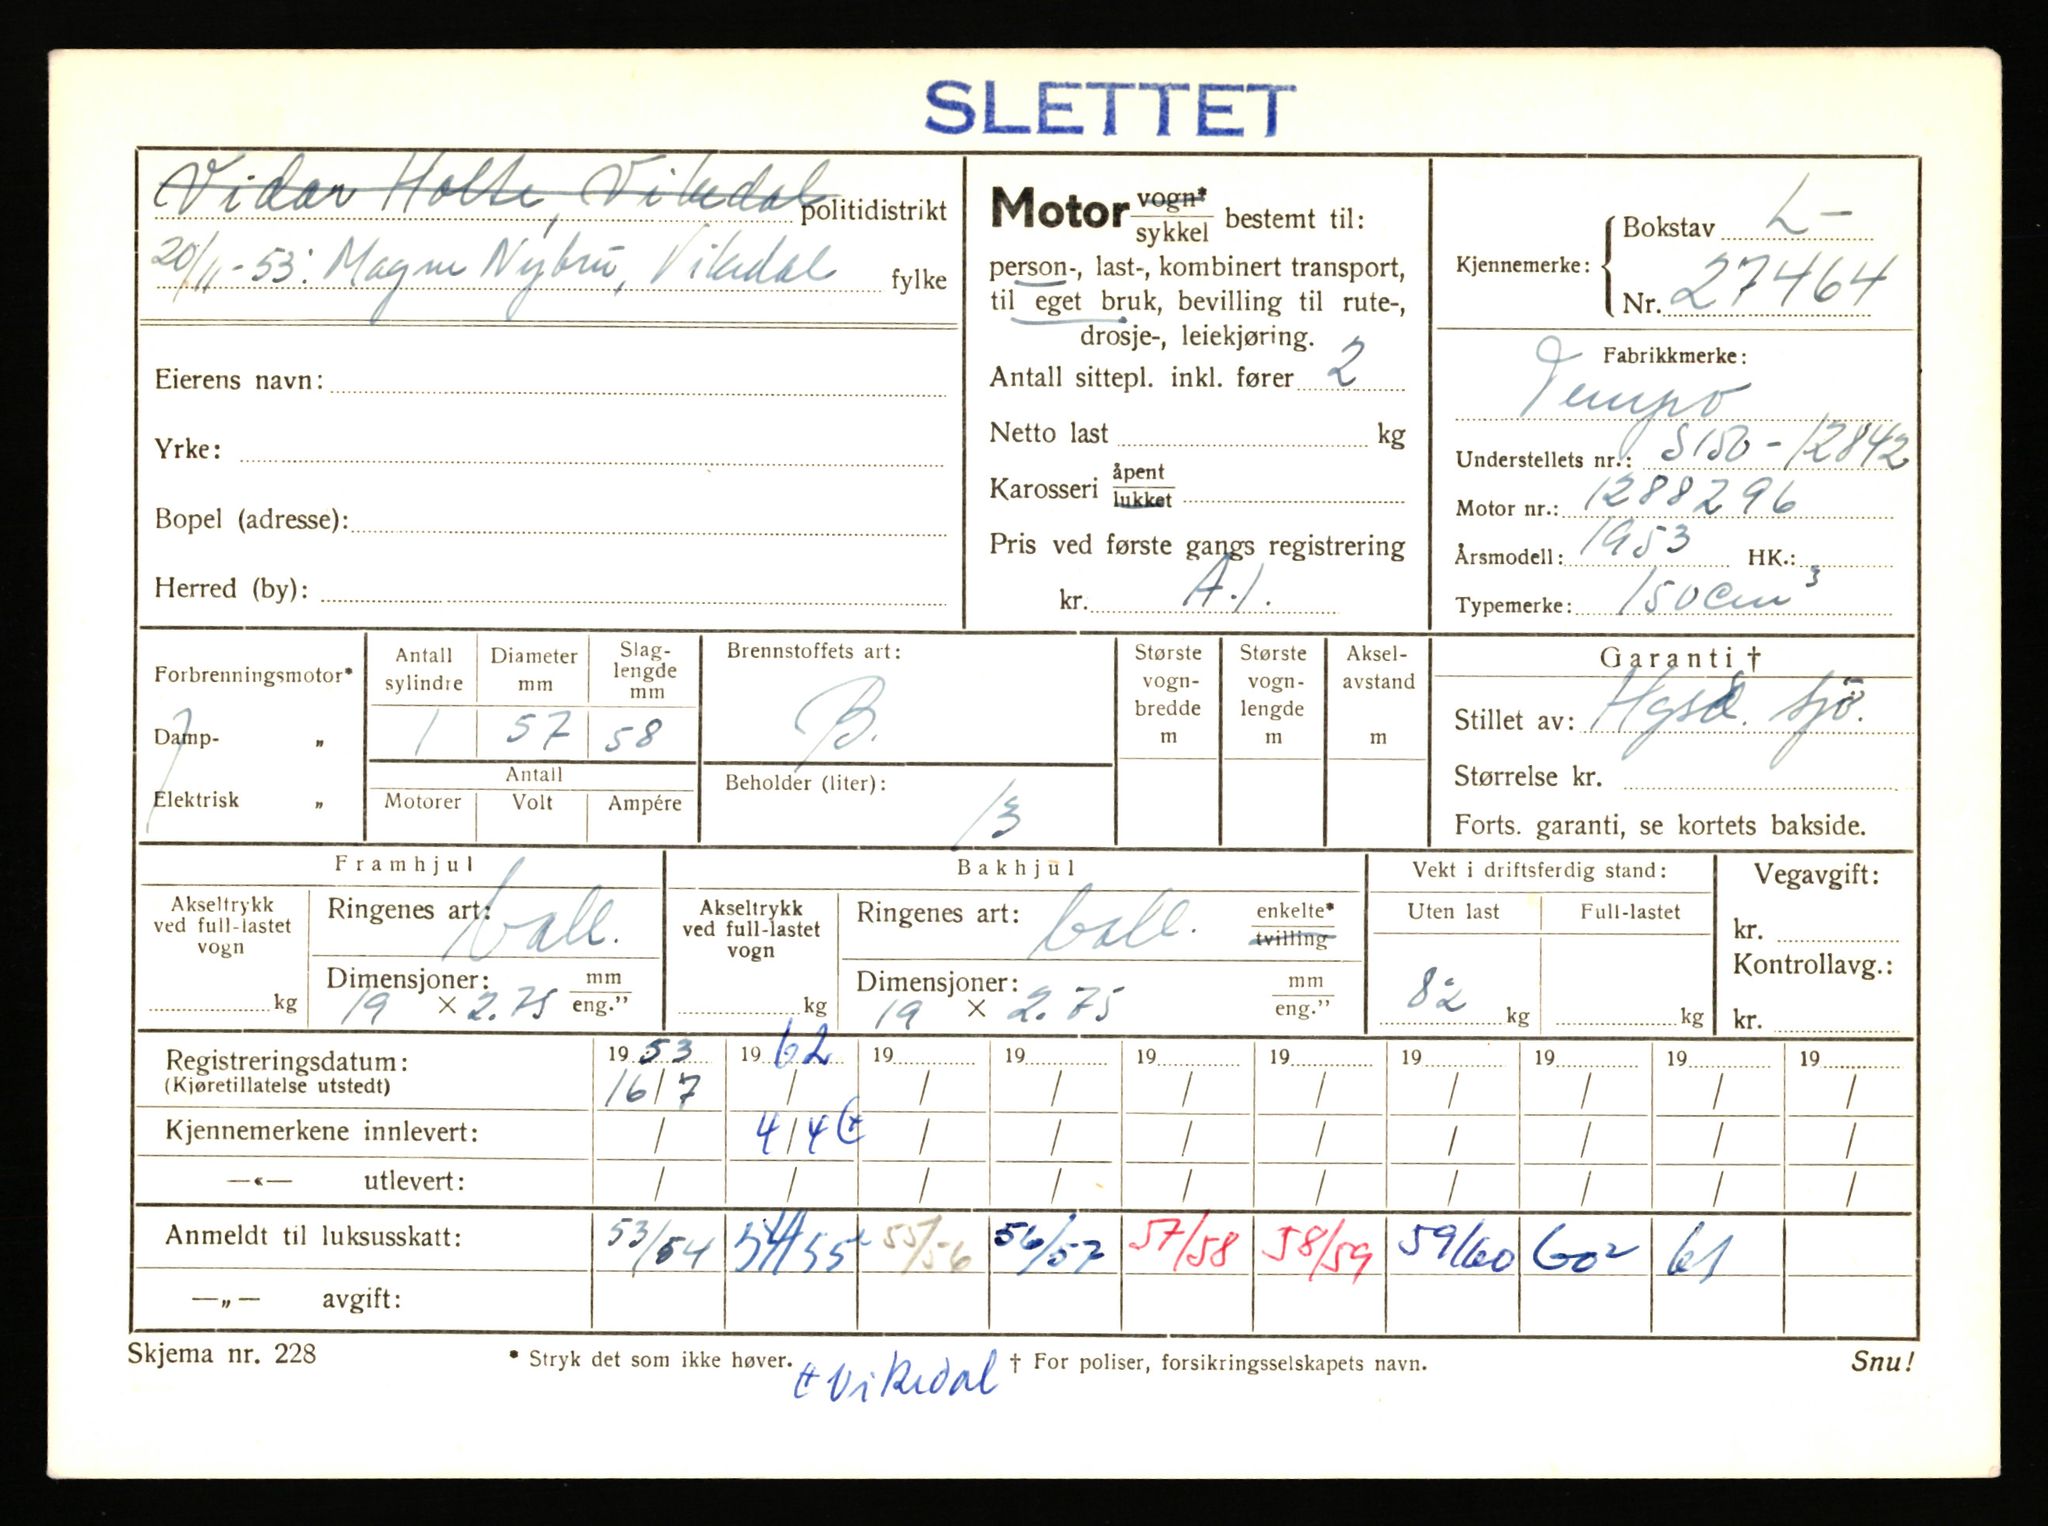 SLETTET
Vidar Holte, Vikedal politidistrikt
20/11-53: Magne Nybru, Vikedal fylke
Eierens navn:
Yrke:
Bopel (adresse):
Herred (by):
Motor vogn* sykkel bestemt til:
person-, last-, kombinert transport,
til eget bruk, bevilling til rute-,
drosje-, leiekjøring.
Antall sittepl. inkl. fører 2
Netto last kg
Karosseri åpent lukket
Pris ved første gangs registrering
kr. A.1.
Kjennemerke: Bokstav L-
Nr. 27464
Fabrikkmerke:
Tempo
Understellets nr.: S150-12842
Motor nr.: 1288296
Årsmodell: 1953 HK.:
Typemerke: 150cm³
Forbrenningsmotor*
Damp- „
Elektrisk „
Antall sylindre Diameter mm Slag-lengde mm
1 57 58
Antall
Motorer Volt Ampére
Brennstoffets art:
B.
Beholder (liter):
13
Største vogn-bredde m
Største vogn-lengde m
Aksel-avstand m
Garanti †
Stillet av: Hgsd. sjø.
Størrelse kr.
Forts. garanti, se kortets bakside.
Framhjul
Akseltrykk ved full-lastet vogn kg
Ringenes art: ball.
Dimensjoner: mm eng.”
19 × 2.75
Bakhjul
Akseltrykk ved full-lastet vogn kg
Ringenes art: ball. enkelte* tvilling
Dimensjoner: mm eng.”
19 × 2.75
Vekt i driftsferdig stand:
Uten last Full-lastet
82 kg kg
Vegavgift:
kr.
Kontrollavg.:
kr.
Registreringsdatum: 19 53 19 62 19 19 19 19 19 19 19 19
(Kjøretillatelse utstedt) 16/7 / / / / / / / / /
Kjennemerkene innlevert: / 4/4 / / / / / / / /
—«— utlevert: / / / / / / / / / /
Anmeldt til luksusskatt: 53/54 54/55 55/56 56/57 57/58 58/59 59/60 60² 61
—„— avgift:
Skjema nr. 228 * Stryk det som ikke høver. † For poliser, forsikringsselskapets navn. Snu!
Vikedal